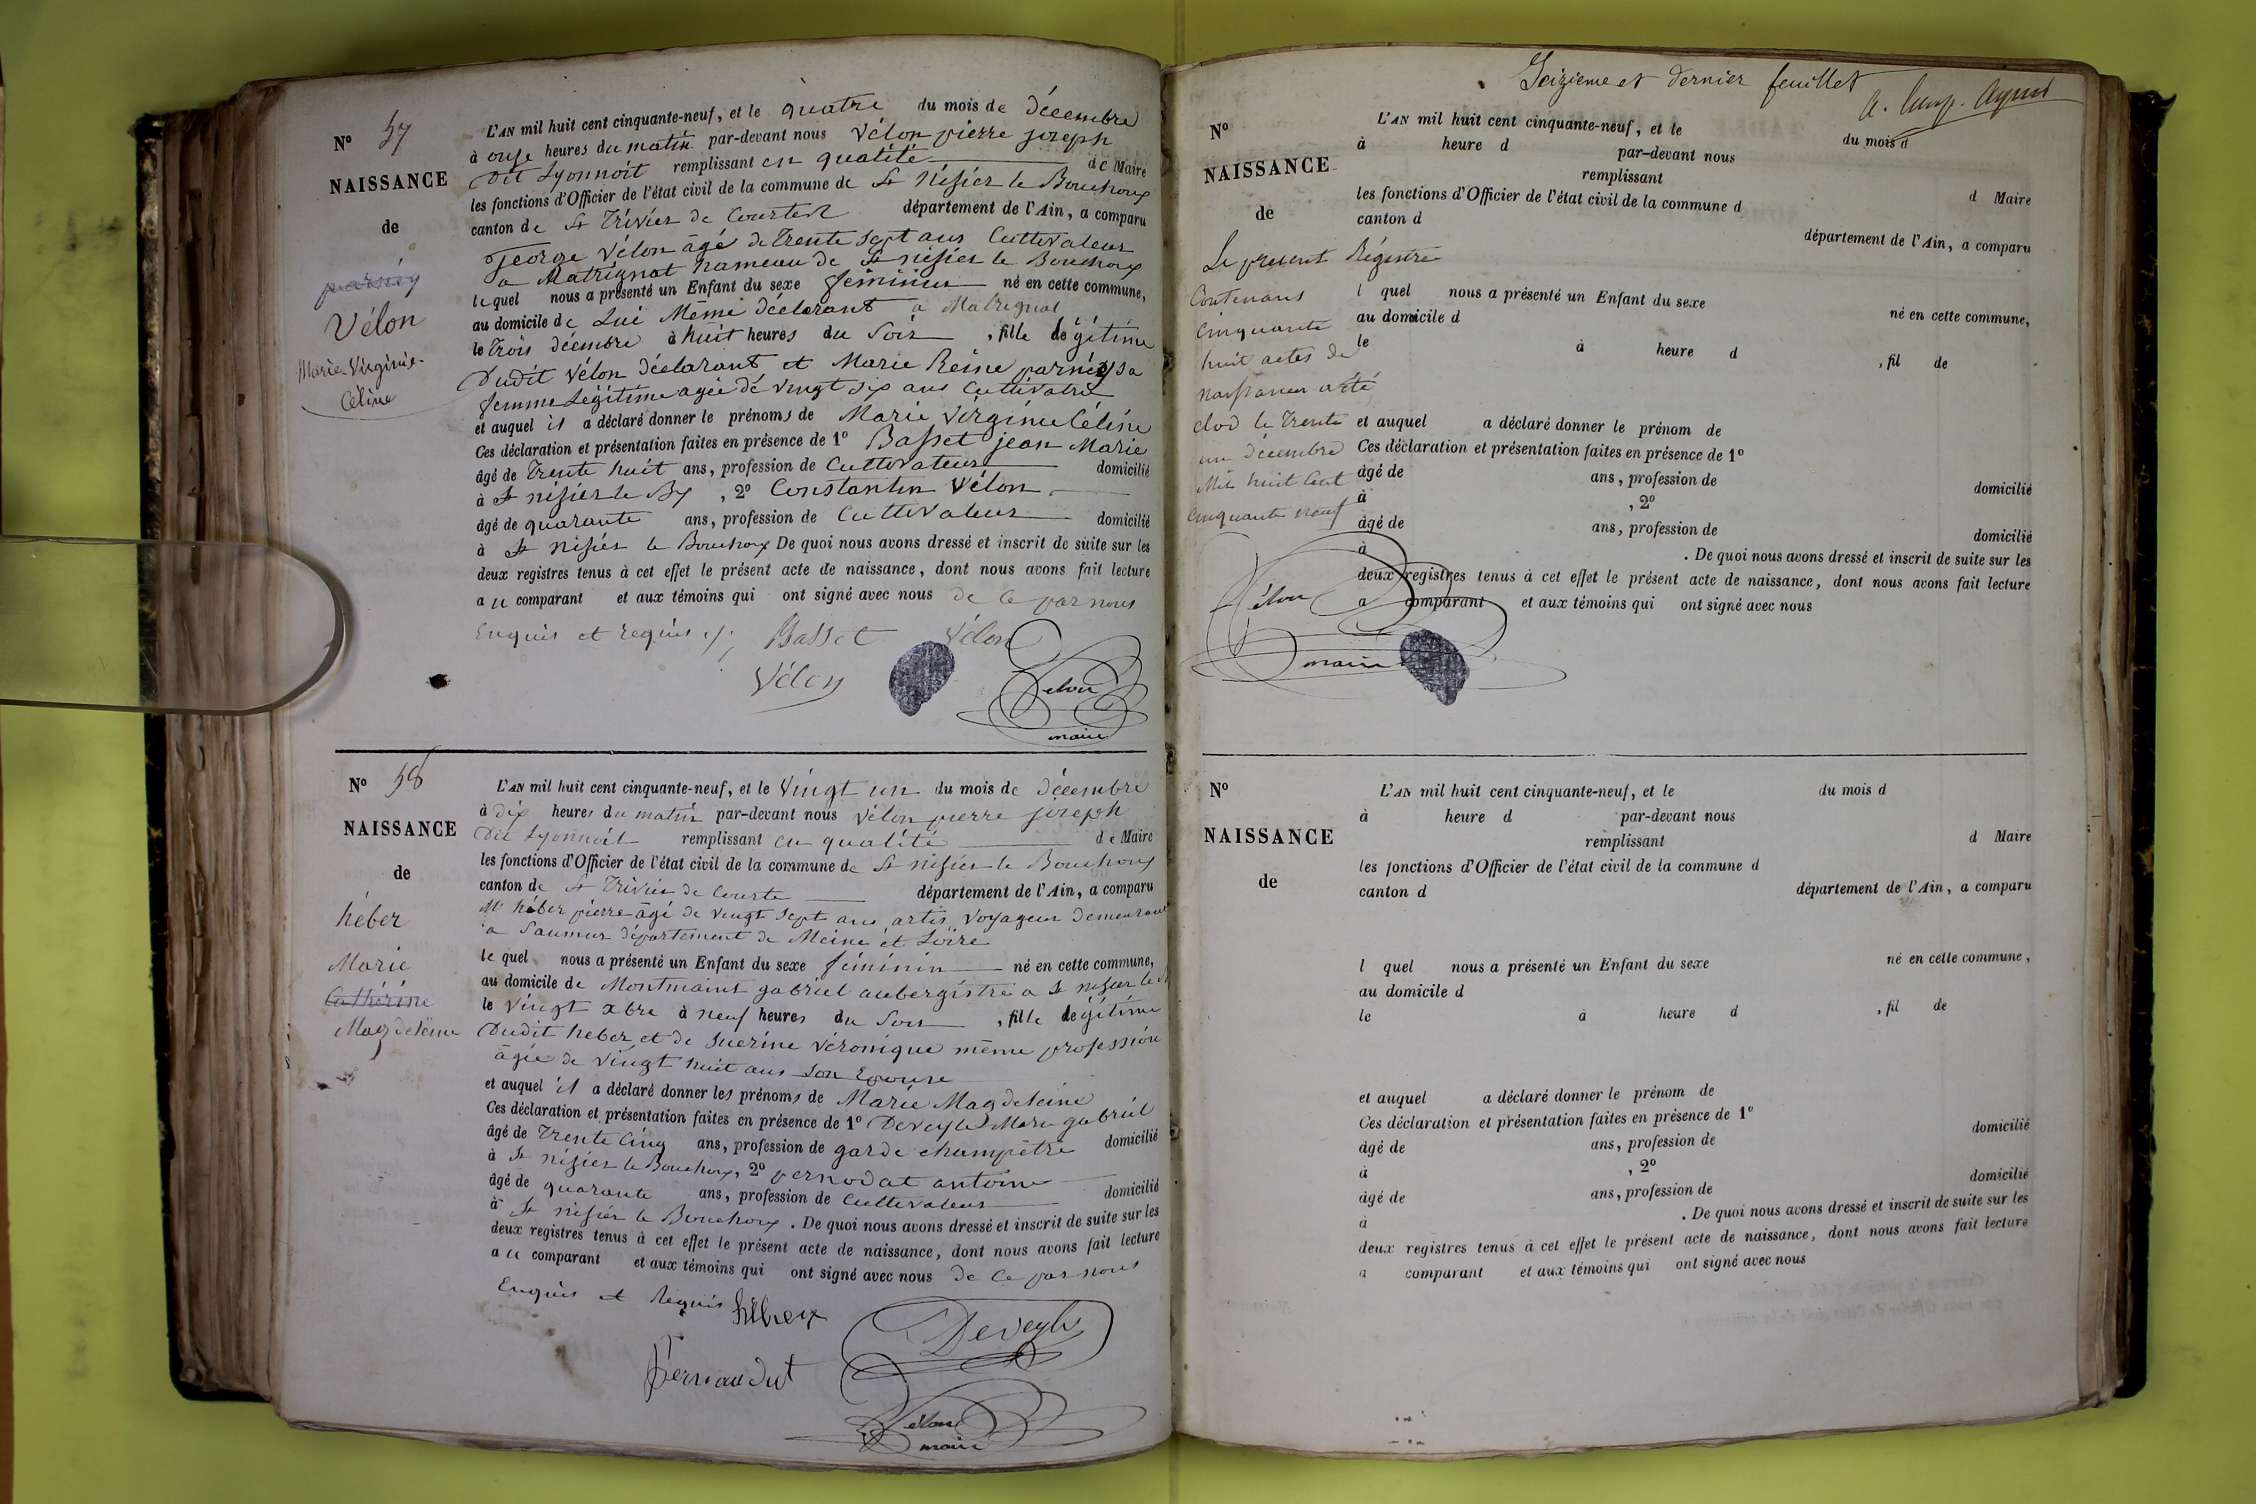 N° 57
NAISSANCE
de
Vélon
Marie Virginie
Céline
L'AN mil huit cent cinquante-neuf, et le quatre du mois de décembre
à onze heures du matin par-devant nous Vélon pierre joseph
dit Lyonnoit remplissant en qualité de Maire
les fonctions d'Officier de l'état civil de la commune de St Nisier le Bouchoux
canton de St Trivier de Courtes département de l'Ain, a comparu
George Vélon âgé de Trente sept ans Cultivateur
a Matrignat hameau de St nisier le Bouchoux
lequel nous a présenté un Enfant du sexe féminin né en cette commune,
au domicile de Lui Même déclarant a Matrignat
le Trois décembre à huit heures du Soir , fille légitime
Dudit Vélon déclarant et Marie Reine parney sa
femme Légitime agée de vingt six ans Cultivatrice
et auquel il a déclaré donner le prénoms de Marie Virginie Céline
Ces déclaration et présentation faites en présence de 1° Basset jean Marie
âgé de Trente huit ans, profession de Cultivateur domicilié
à St nisier le Bx , 2° Constantin Vélon
âgé de quarante ans, profession de Cultivateur domicilié
à St Nisier le Bouchoux De quoi nous avons dressé et inscrit de suite sur les
deux registres tenus à cet effet le présent acte de naissance, dont nous avons fait lecture
a u comparant et aux témoins qui ont signé avec nous de ce par nous
Enquis et requis ./. Basset Vélon
Vélon
Vélon
maire
N° 58
NAISSANCE
de
héber
Marie
Cathérine
Magdeleine
L'AN mil huit cent cinquante-neuf, et le Vingt un du mois de décembre
à dix heures du matin par-devant nous Vélon pierre joseph
Dit Lyonnoit remplissant en qualité de Maire
les fonctions d'Officier de l'état civil de la commune de St nisier le Bouchoux
canton de St Trivier de Courte département de l'Ain, a comparu
Mr héber pierre âgé de vingt sept ans artis voyageur demeurant
a Saumur département de Meine et Loire
le quel nous a présenté un Enfant du sexe féminin né en cette commune,
au domicile de Montmaint gabriel aubergistre a St nisier le
le vingt xbre à neuf heures du Soir , fille légitime
Dudit heber et de Suerine Véronique même profession
âgée de vingt huit ans Son Epouse
et auquel il a déclaré donner les prénoms de Marie Magdeleine
Ces déclaration et présentation faites en présence de 1° Deveyle Marie gabriel
âgé de Trente Cinq ans, profession de garde champêtre domicilié
à St nisier le Bouchoux, 2° pernodat antoine
âgé de quarante ans, profession de Cultivateur domicilié
à St nisier le Bouchoux . De quoi nous avons dressé et inscrit de suite sur les
deux registres tenus à cet effet le présent acte de naissance, dont nous avons fait lecture
a u comparant et aux témoins qui ont signé avec nous de ce par nous
Enquis et Requis
Deveyle
Vélon
maire
Seizieme et dernier feuillet
N°
NAISSANCE
de
L'AN mil huit cent cinquante-neuf, et le du mois d
à heure d par-devant nous
remplissant d Maire
les fonctions d'Officier de l'état civil de la commune d
canton d département de l'Ain, a comparu
Le present Régistre
Contenans
Cinquante
huit actes de
naissances arté
clod le Trente
un décembre
Mil huit Cent
Cinquante neuf
Vélon
maire
l quel nous a présenté un Enfant du sexe né en cette commune,
au domicile d
le à heure d , fil de
et auquel a déclaré donner le prénom de
Ces déclaration et présentation faites en présence de 1°
âgé de ans, profession de domicilié
à , 2°
âgé de ans, profession de domicilié
à . De quoi nous avons dressé et inscrit de suite sur les
deux registres tenus à cet effet le présent acte de naissance, dont nous avons fait lecture
a comparant et aux témoins qui ont signé avec nous
N°
NAISSANCE
de
L'AN mil huit cent cinquante-neuf, et le du mois d
à heure d par-devant nous
remplissant d Maire
les fonctions d'Officier de l'état civil de la commune d
canton d département de l'Ain, a comparu
l quel nous a présenté un Enfant du sexe né en cette commune,
au domicile d
le à heure d , fil de
et auquel a déclaré donner le prénom de
Ces déclaration et présentation faites en présence de 1°
âgé de ans, profession de domicilié
à , 2°
âgé de ans, profession de domicilié
à . De quoi nous avons dressé et inscrit de suite sur les
deux registres tenus à cet effet le présent acte de naissance, dont nous avons fait lecture
a comparant et aux témoins qui ont signé avec nous